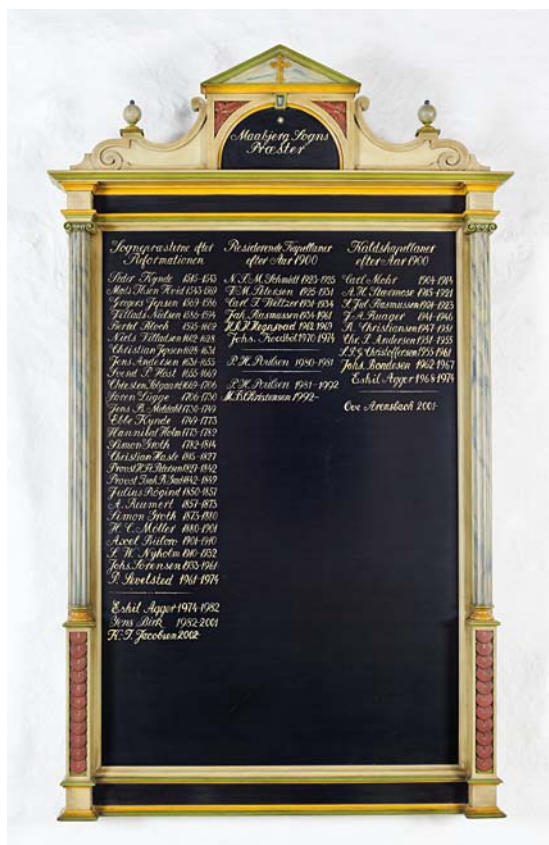 Maabjerg Sogns
Præster
Sognepræsterne efter
Reformationen
Peder Kynde 1515-1543
Mats Ibsen Hvid 1543-1569
Gregers Jepsen 1569-1586
Villads Nielsen 1586-1594
Bertel Bloch 1595-1602
Niels Villadsen 1602-1628
Christian Jepsen 1628-1631
Jens Andersen 1631-1655
Svend P. Höst 1655-1669
Christen Solgaard 1669-1706
Sören Lugge 1706-1730
Jens B. 1730-1749
Ebbe Kynde 1749-1773
Hannibal Holm 1773-1782
Simon Groth 1782-1814
Christian Hasle 1815-1827
Provst H. Fr. Petersen 1827-1842
Provst 1842-1849
Julius Rogind 1850-1857
A. Reumert 1857-1875
Simon Groth 1875-1880
H. C. Möller 1880-1901
Axel Bülow 1901-1910
S. W. Nyholm 1910-1932
Johs Sörensen 1933-1961
P. Sevelsted 1961-1974
Eskil Agger 1974-1982
Jens Birk 1982-2001
K. J. Jacobsen 2002-
Residerende Kapellaner
efter Aar 1900
N. P. M. Schmidt 1923-1925
V. M. Petersen 1925-1931
Carl T. Weltzer 1931-1934
Jak Rasmussen 1934-1961
Hogsvad 1962-1969
Johs. Kvotbol 1970-1974
P. H. Poulsen 1980-1981
P. H. Poulsen 1981-1992
M. B. Christensen 1992-
Kaldskapellaner
efter Aar 1900
Carl Mohr 1904-1914
A. H. Stavnose 1915-1921
P. Jul Rasmussen 1921-1923
J. A. Ruager 1941-1946
R. Christiansen 1947-1951
Chr. P. Andersen 1951-1955
Christoffersen 1955-1961
Johs. Bondesen 1962-1967
Eskil Agger 1968-1974
Ove Arensbach 2001-